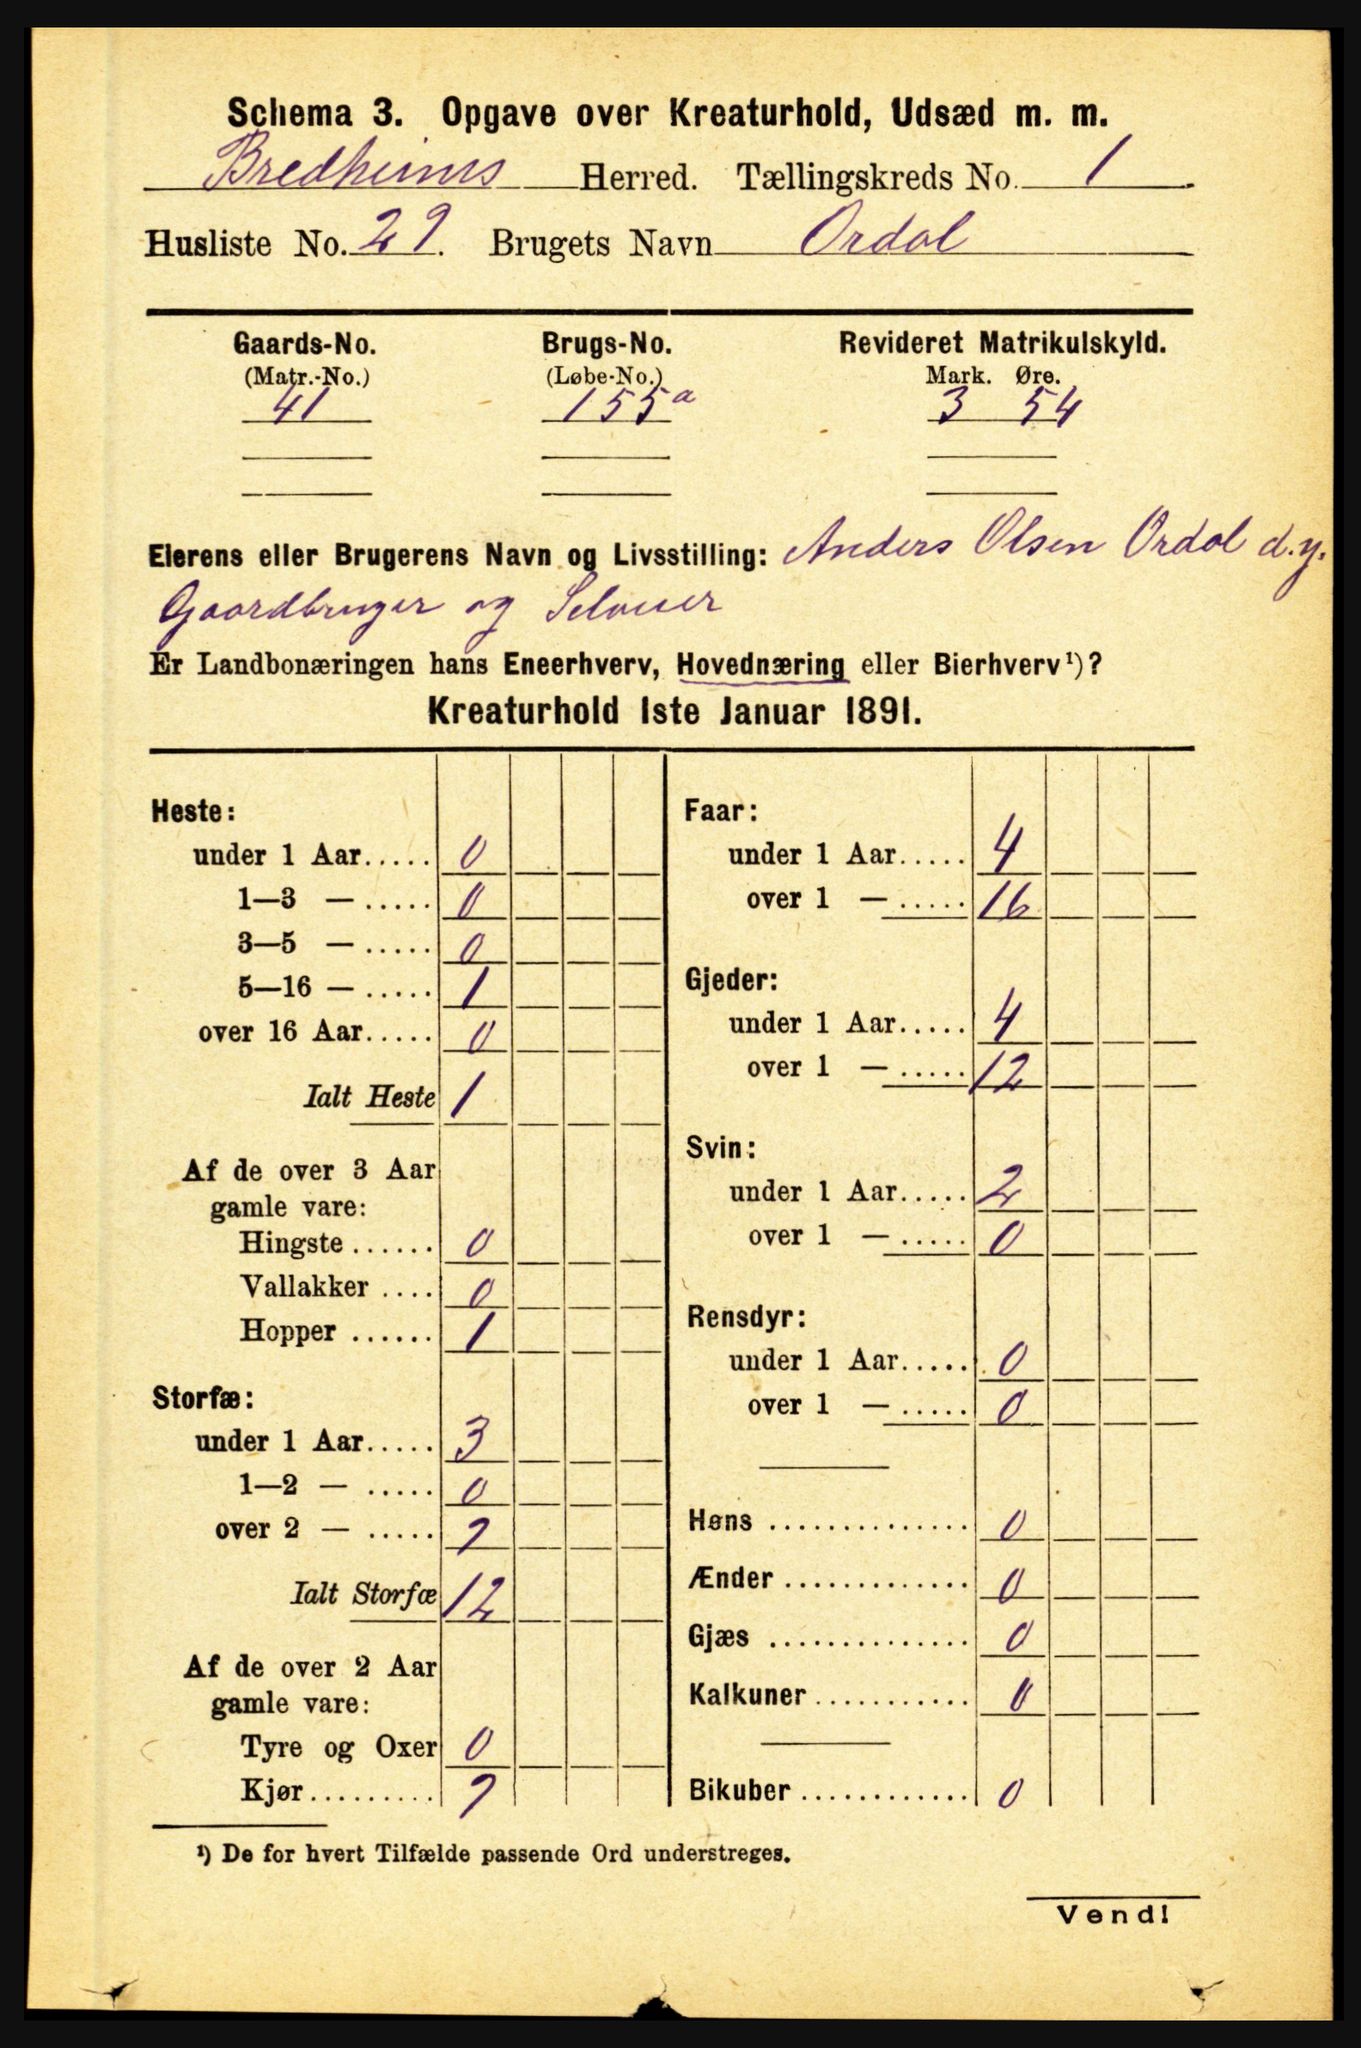 Schema 3. Opgave over Kreaturhold, Udsæd m. m.
Bredheims Herred. Tællingskreds No. 1
Husliste No. 29. Brugets Navn Ordal
Gaards-No. Brugs-No. Revideret Matrikulskyld.
(Matr.-No.) (Løbe-No.) Mark. Øre.
41 155a 3 54
Eierens eller Brugerens Navn og Livsstilling: Anders Olsen Ordal d.y.
Gaardbruger og Seleier
Er Landbonæringen hans Eneerhverv, Hovednæring eller Bierhverv¹)?
Kreaturhold 1ste Januar 1891.
Heste:
under 1 Aar..... 0
1—3 — ..... 0
3—5 — ..... 0
5—16 — ..... 1
over 16 Aar..... 0
Ialt Heste 1
Af de over 3 Aar
gamle vare:
Hingste ...... 0
Vallakker .... 0
Hopper ...... 1
Storfæ:
under 1 Aar..... 3
1—2 — ..... 0
over 2 — ..... 9
Ialt Storfæ 12
Af de over 2 Aar
gamle vare:
Tyre og Oxer 0
Kjør......... 9
Faar:
under 1 Aar..... 4
over 1 — ..... 16
Gjeder:
under 1 Aar..... 4
over 1 — ..... 12
Svin:
under 1 Aar..... 2
over 1 — ..... 0
Rensdyr:
under 1 Aar..... 0
over 1 — ..... 0
Høns .............. 0
Ænder ............. 0
Gjæs .............. 0
Kalkuner........... 0
Bikuber ............ 0
¹) De for hvert Tilfælde passende Ord understreges.
Vend!